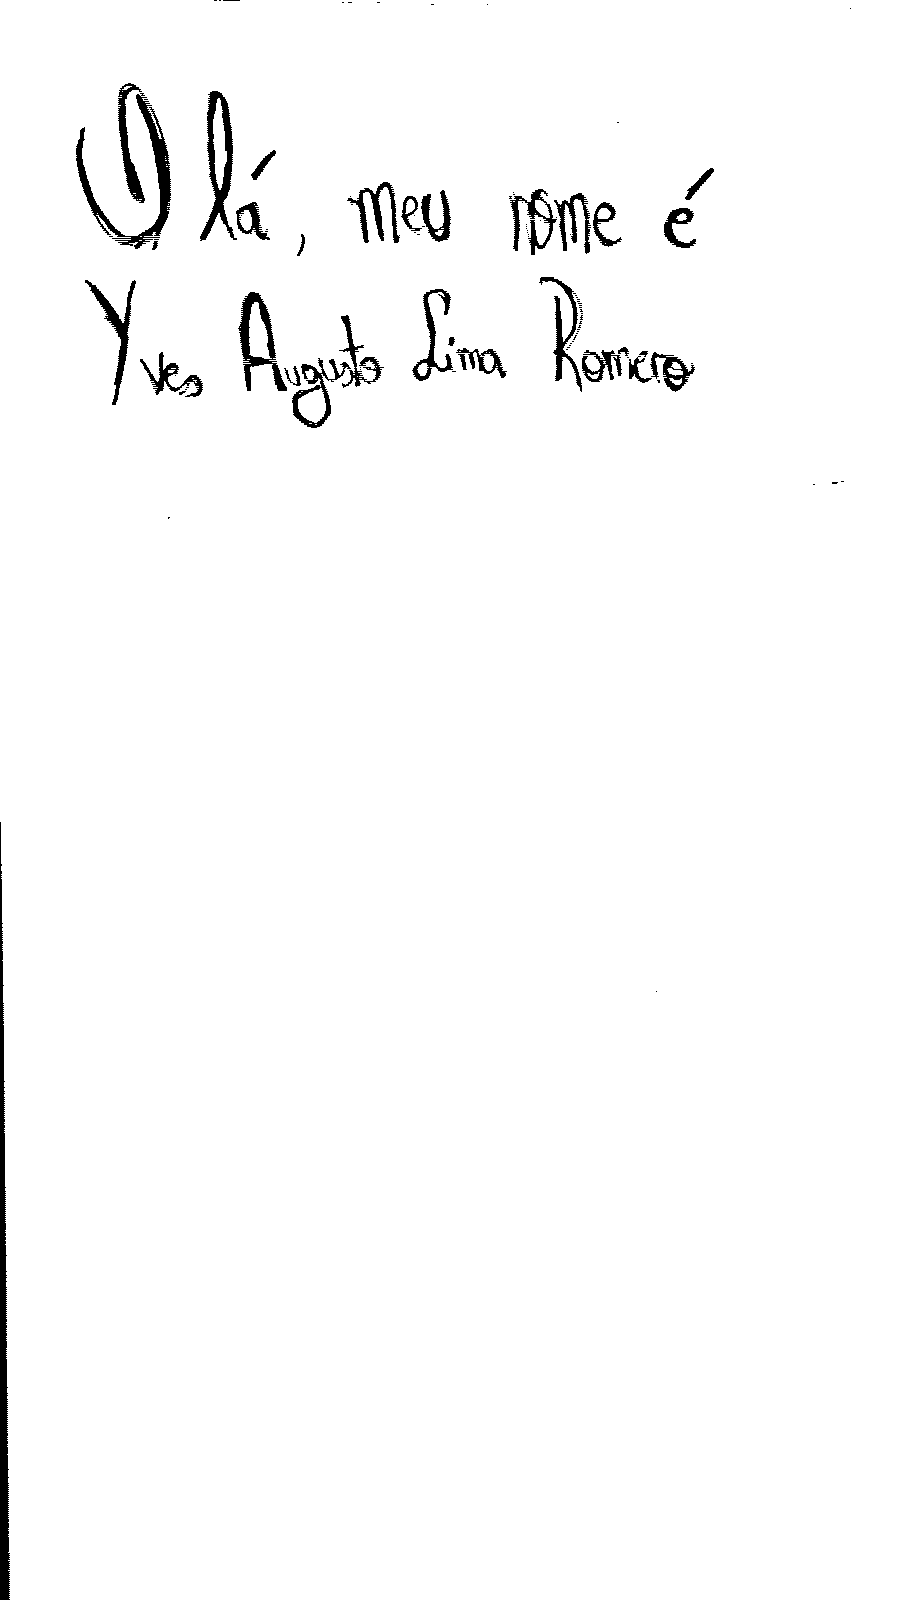 Olá, meu nome é
Yves Augusto Lima Romero